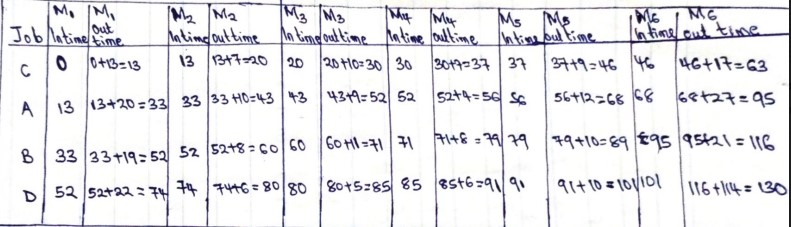 Job M1 In time M1 out time M2 In time M2 out time M3 In time M3 out time M4 In time M4 out time M5 In time M5 out time M6 In time M6 out time
C 0 0+13=13 13 13+7=20 20 20+10=30 30 30+7=37 37 37+9=46 46 46+17=63
A 13 13+20=33 33 33+10=43 43 43+9=52 52 52+4=56 56 56+12=68 68 68+27=95
B 33 33+19=52 52 52+8=60 60 60+11=71 71 71+8=79 79 79+10=89 95 95+21=116
D 52 52+22=74 74 74+6=80 80 80+5=85 85 85+6=91 91 91+10=101 101 116+114=130